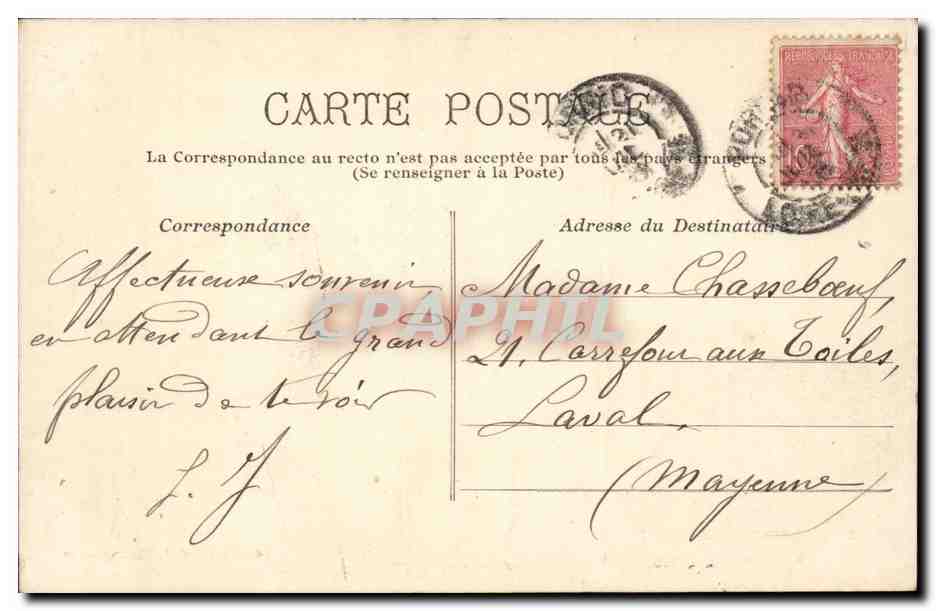 CARTE POSTALE
La Correspondance au recto n'est pas acceptée par tous les pays étrangers
(Se renseigner à la Poste)
Correspondance
Affectueux souvenir
en attendant le grand
plaisir de te voir
Adresse du Destinataire
Madame Chassebœuf,
21, Carrefour aux Toiles,
Laval,
(Mayenne)
CPAPHIL